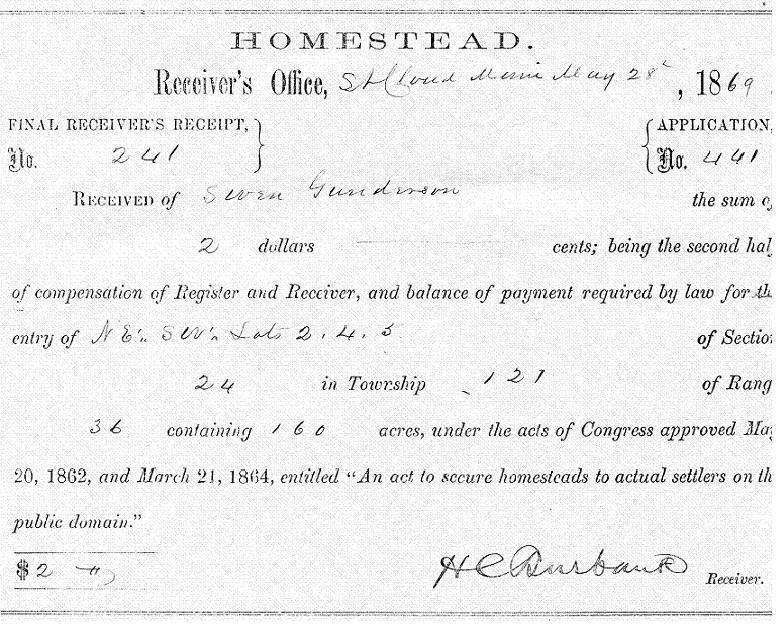 HOMESTEAD.
Receiver's Office, St Cloud Minn May 28th, 1869
FINAL RECEIVER'S RECEIPT, APPLICATION,
No. 241 No. 441
RECEIVED of Swen Gunderson the sum of
2 dollars cents; being the second half
of compensation of Register and Receiver, and balance of payment required by law for the
entry of NE¼ SW¼ Lots 2. 4. 5 of Section
24 in Township 121 of Rang
36 containing 160 acres, under the acts of Congress approved May
20, 1862, and March 21, 1864, entitled “An act to secure homesteads to actual settlers on th
public domain.”
$ 2
H C Burbank Receiver.